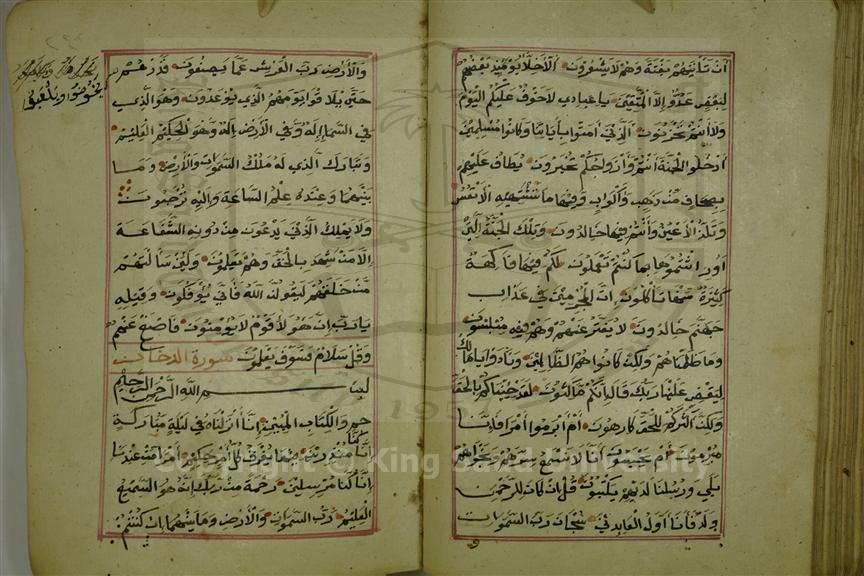 ان تأتيهم بغتة وهم لا يشعرون الأخلاء يومئذ بعضهم
لبعض عدو إلا المتقين يا عبادي لا خوف عليكم اليوم
ولا أنتم تحزنون الذين آمنوا بآياتنا وكانوا مسلمين
ادخلوا الجنة أنتم وأزواجكم تحبرون يطاف عليهم
بصحاف من ذهب وأكواب وفيها ما تشتهيه الأنفس
وتلذ الأعين وأنتم فيها خالدون وتلك الجنة التي
أورثتموها بما كنتم تعملون لكم فيها فاكهة
كثيرة منها تأكلون إن المجرمين في عذاب
جهنم خالدون لا يفتر عنهم وهم فيه مبلسون
وما ظلمناهم ولكن كانوا هم الظالمين ونادوا يا مالك
ليقض علينا ربك قال إنكم ماكثون لقد جئناكم بالحق
ولكن أكثركم للحق كارهون أم أبرموا أمرا فإنا
مبرمون أم يحسبون أنا لا نسمع سرهم ونجواهم
بلى ورسلنا لديهم يكتبون قل إن كان للرحمن
ولد فأنا أول العابدين سبحان رب السموات
والأرض رب العرش عما يصفون فذرهم
يخوضوا ويلعبوا
حتى يلاقوا يومهم الذي يوعدون وهو الذي
في السماء إله وفي الأرض إله وهو الحكيم العليم
وتبارك الذي له ملك السموات والأرض وما
بينهما وعنده علم الساعة وإليه ترجعون
ولا يملك الذين يدعون من دونه الشفاعة
إلا من شهد بالحق وهم يعلمون ولئن سألتهم
من خلقهم ليقولن الله فأنى يؤفكون وقيله
يا رب إن هؤلاء قوم لا يؤمنون فاصفح عنهم
وقل سلام فسوف يعلمون سورة الدخان
بسم الله الرحمن الرحيم
حم والكتاب المبين إنا أنزلناه في ليلة مباركة
إنا كنا منذرين فيها يفرق كل أمر حكيم أمرا من عندنا
إنا كنا مرسلين رحمة من ربك إنه هو السميع
العليم رب السموات والأرض وما بينهما إن كنتم
Copyright © King Saud University